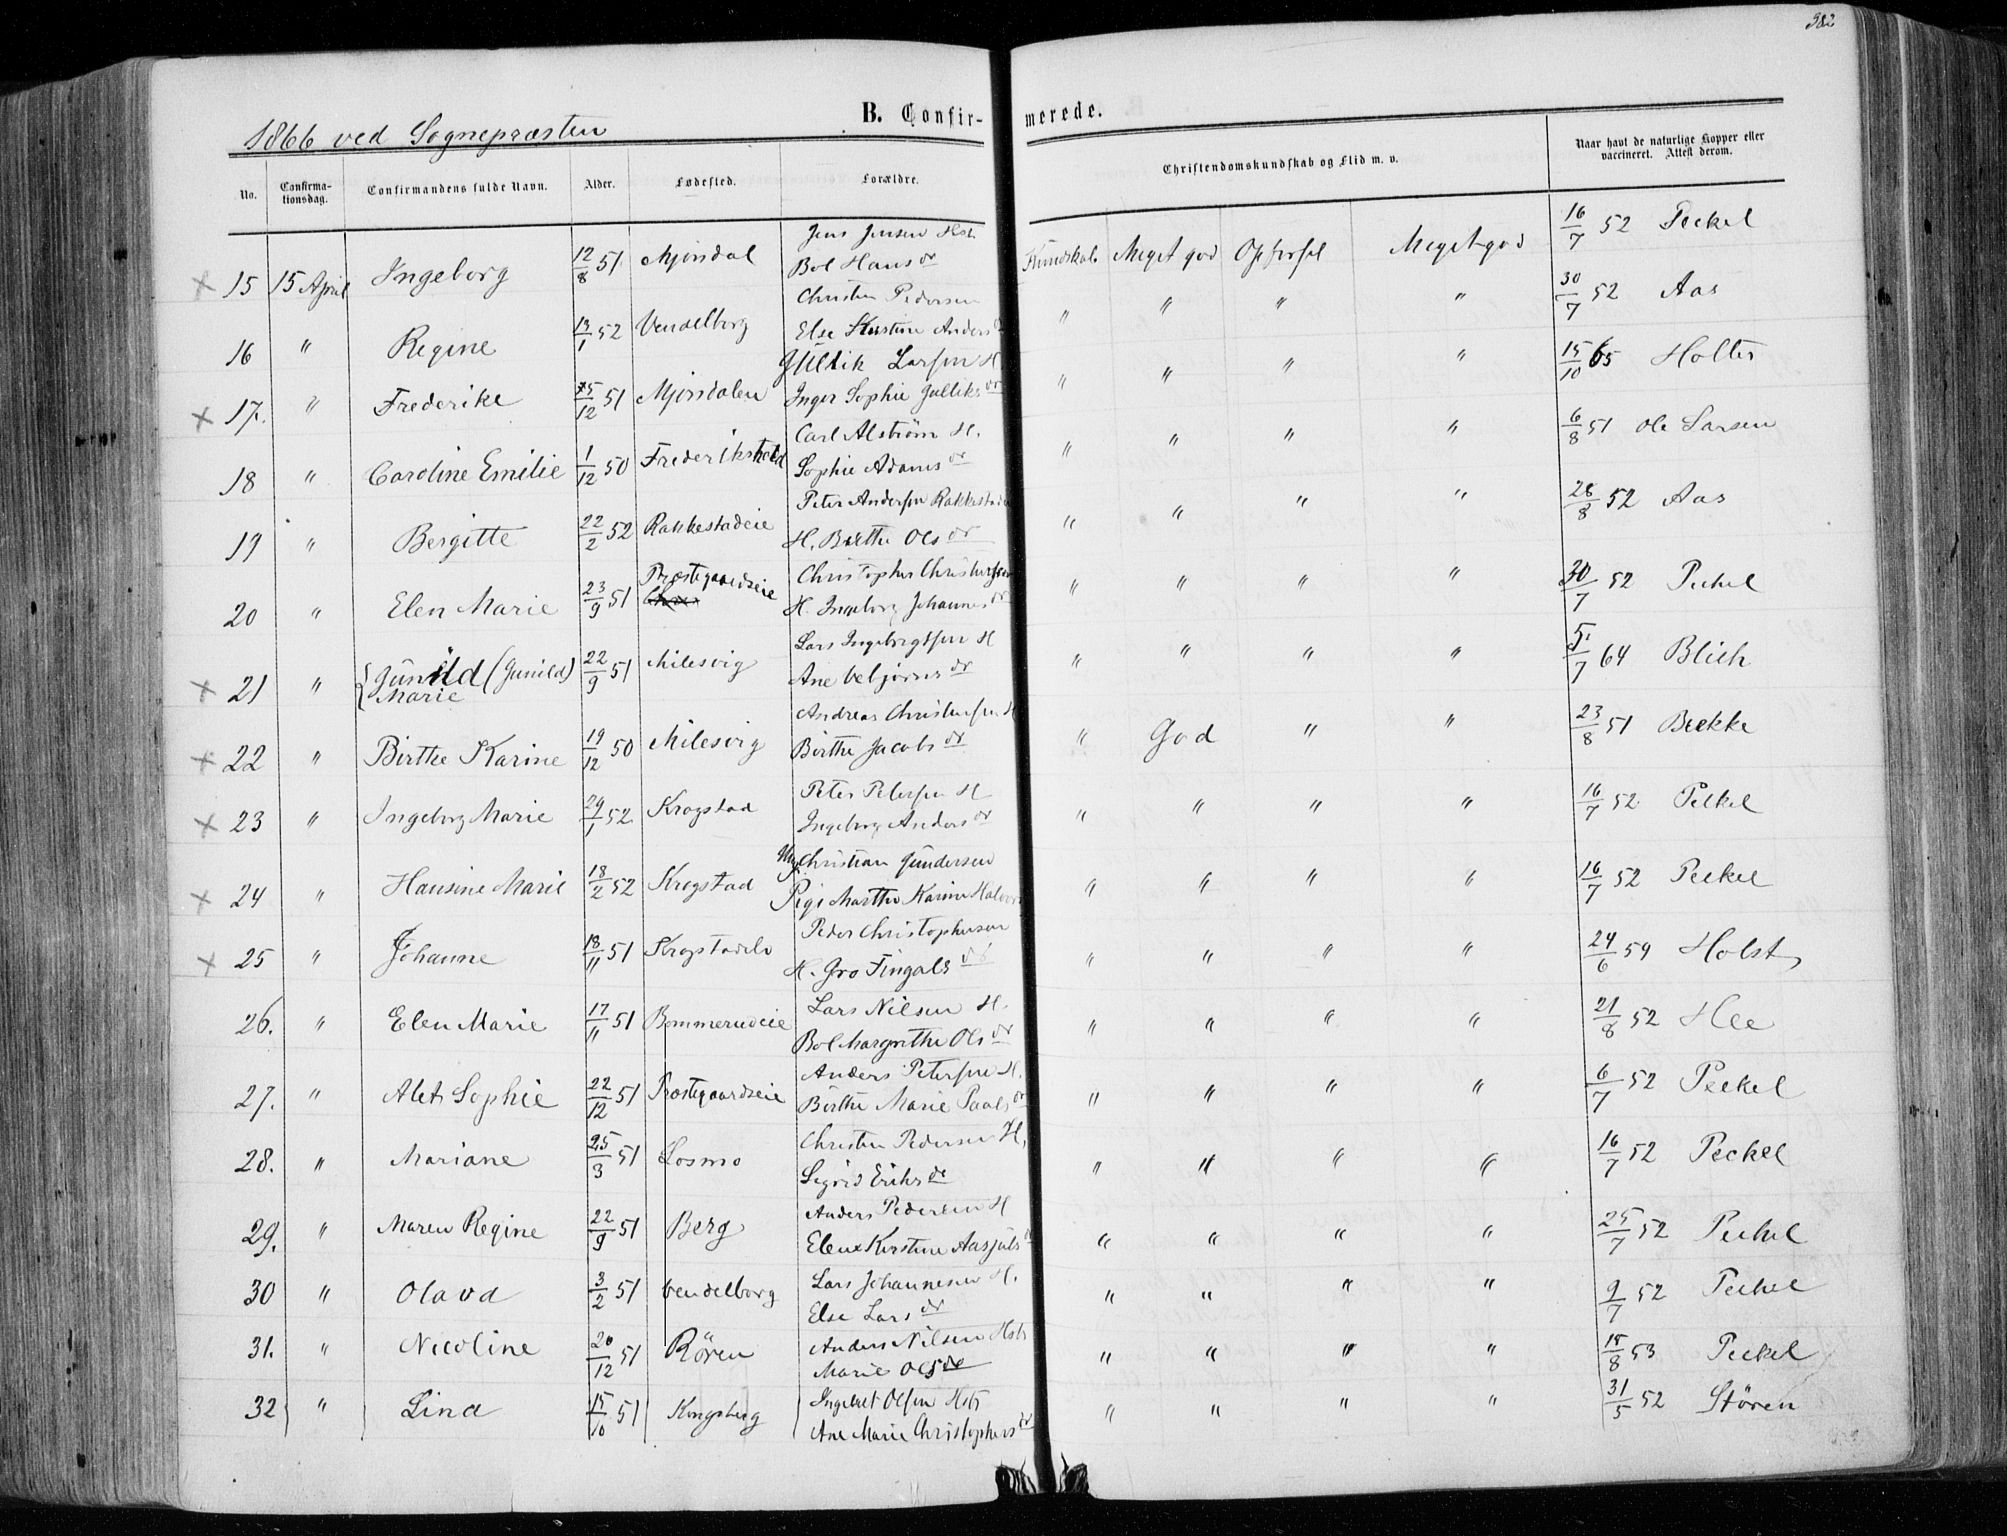 382
B. Confir- merede.
1866 ved Sognepræsten
No. Confirma-tionsdag. Confirmandens fulde Navn. Alder. Fødested. Forældre. Christendomskundskab og Flid m. v. Naar havt de naturlige Kopper eller vaccineret. Attest derom.
Jens Jensen Hst.
15 15 April Ingeborg 12/8 51 Mjøndal Bol Hans dr Kundskab Meget god Opførsel Meget god 16/7 52 Peckel
Christen Pedersen
16 " Regine 13/1 52 Vendelborg Else Kirstine Anders dr " " " " 30/7 52 Aas
Gullik Larsen H
17. " Frederike 25/12 51 Mjøndalen Inger Sophie Gulliks dr " " " " 15/10 65 Holter
Carl Alström H.
18 " Caroline Emilie 1/12 50 Frederikshald Sophie Adams dr " " " " 6/8 51 Ole Larsen
Peter Andersen Rakkestadeie
19 " Bergitte 22/2 52 Rakkestadeie H. Birthe Ols dr " " " " 28/8 52 Aas
Christopher Christensen
20 " Elen Marie 23/9 51 Præstegaardseie H. Ingeborg Johannes dr " " " " 30/7 52 Peckel
Lars Ingebrigtsen H
21 " Gunild (Gunild) Marie 22/9 51 Milesvig Ane Vebjørns dr " " " " 5/7 64 Blich
Andreas Christensen H
22 " Birthe Karine 19/12 50 Milesvig Birthe Jacobs dr " God " " 23/8 51 Bække
Peter Petersen H
23 " Ingeborg Marie 29/1 52 Krogstad Ingeborg Anders dr " " " " 16/7 52 Peckel
Ung. Christian Gundersen
24 " Hansine Marie 18/2 52 Krogstad Pige Marthe Karine Halvors " " " " 16/7 52 Peckel
Peder Christophersen
25 " Johanne 18/11 51 Krogstadelv H. Gro Fingals dr " " " " 24/6 59 Holst
Lars Nilsen H.
26. " Elen Marie 17/11 51 Bommerudeie Bol Margrethe Ols dr " " " " 21/8 52 Hee
Anders Petersen H.
27. " Alet Sophie 22/12 51 Præstegaardseie Birthe Marie Paals dr " " " " 6/7 52 Peckel
Christen Pedersen H.
28. " Mariane 25/3 51 Losmo Sigrid Eriks dr " " " " 16/7 52 Peckel
Anders Pedersen H
29. " Maren Regine 22/9 51 Berg Elene Kirstine Aasjuls dr " " " " 25/7 52 Peckel
Lars Johannesen H.
30 " Olava 3/2 51 Vendelborg Else Lars dr " " " " 9/7 52 Peckel
Anders Nilsen Hst
31. " Nicoline 20/12 51 Røren Marie Ols dr " " " " 18/8 53 Peckel
Ingebret Olsen Hst
32 " Lina 15/10 51 Kongsberg Ane Marie Christophers dr " " " " 31/5 52 Støren